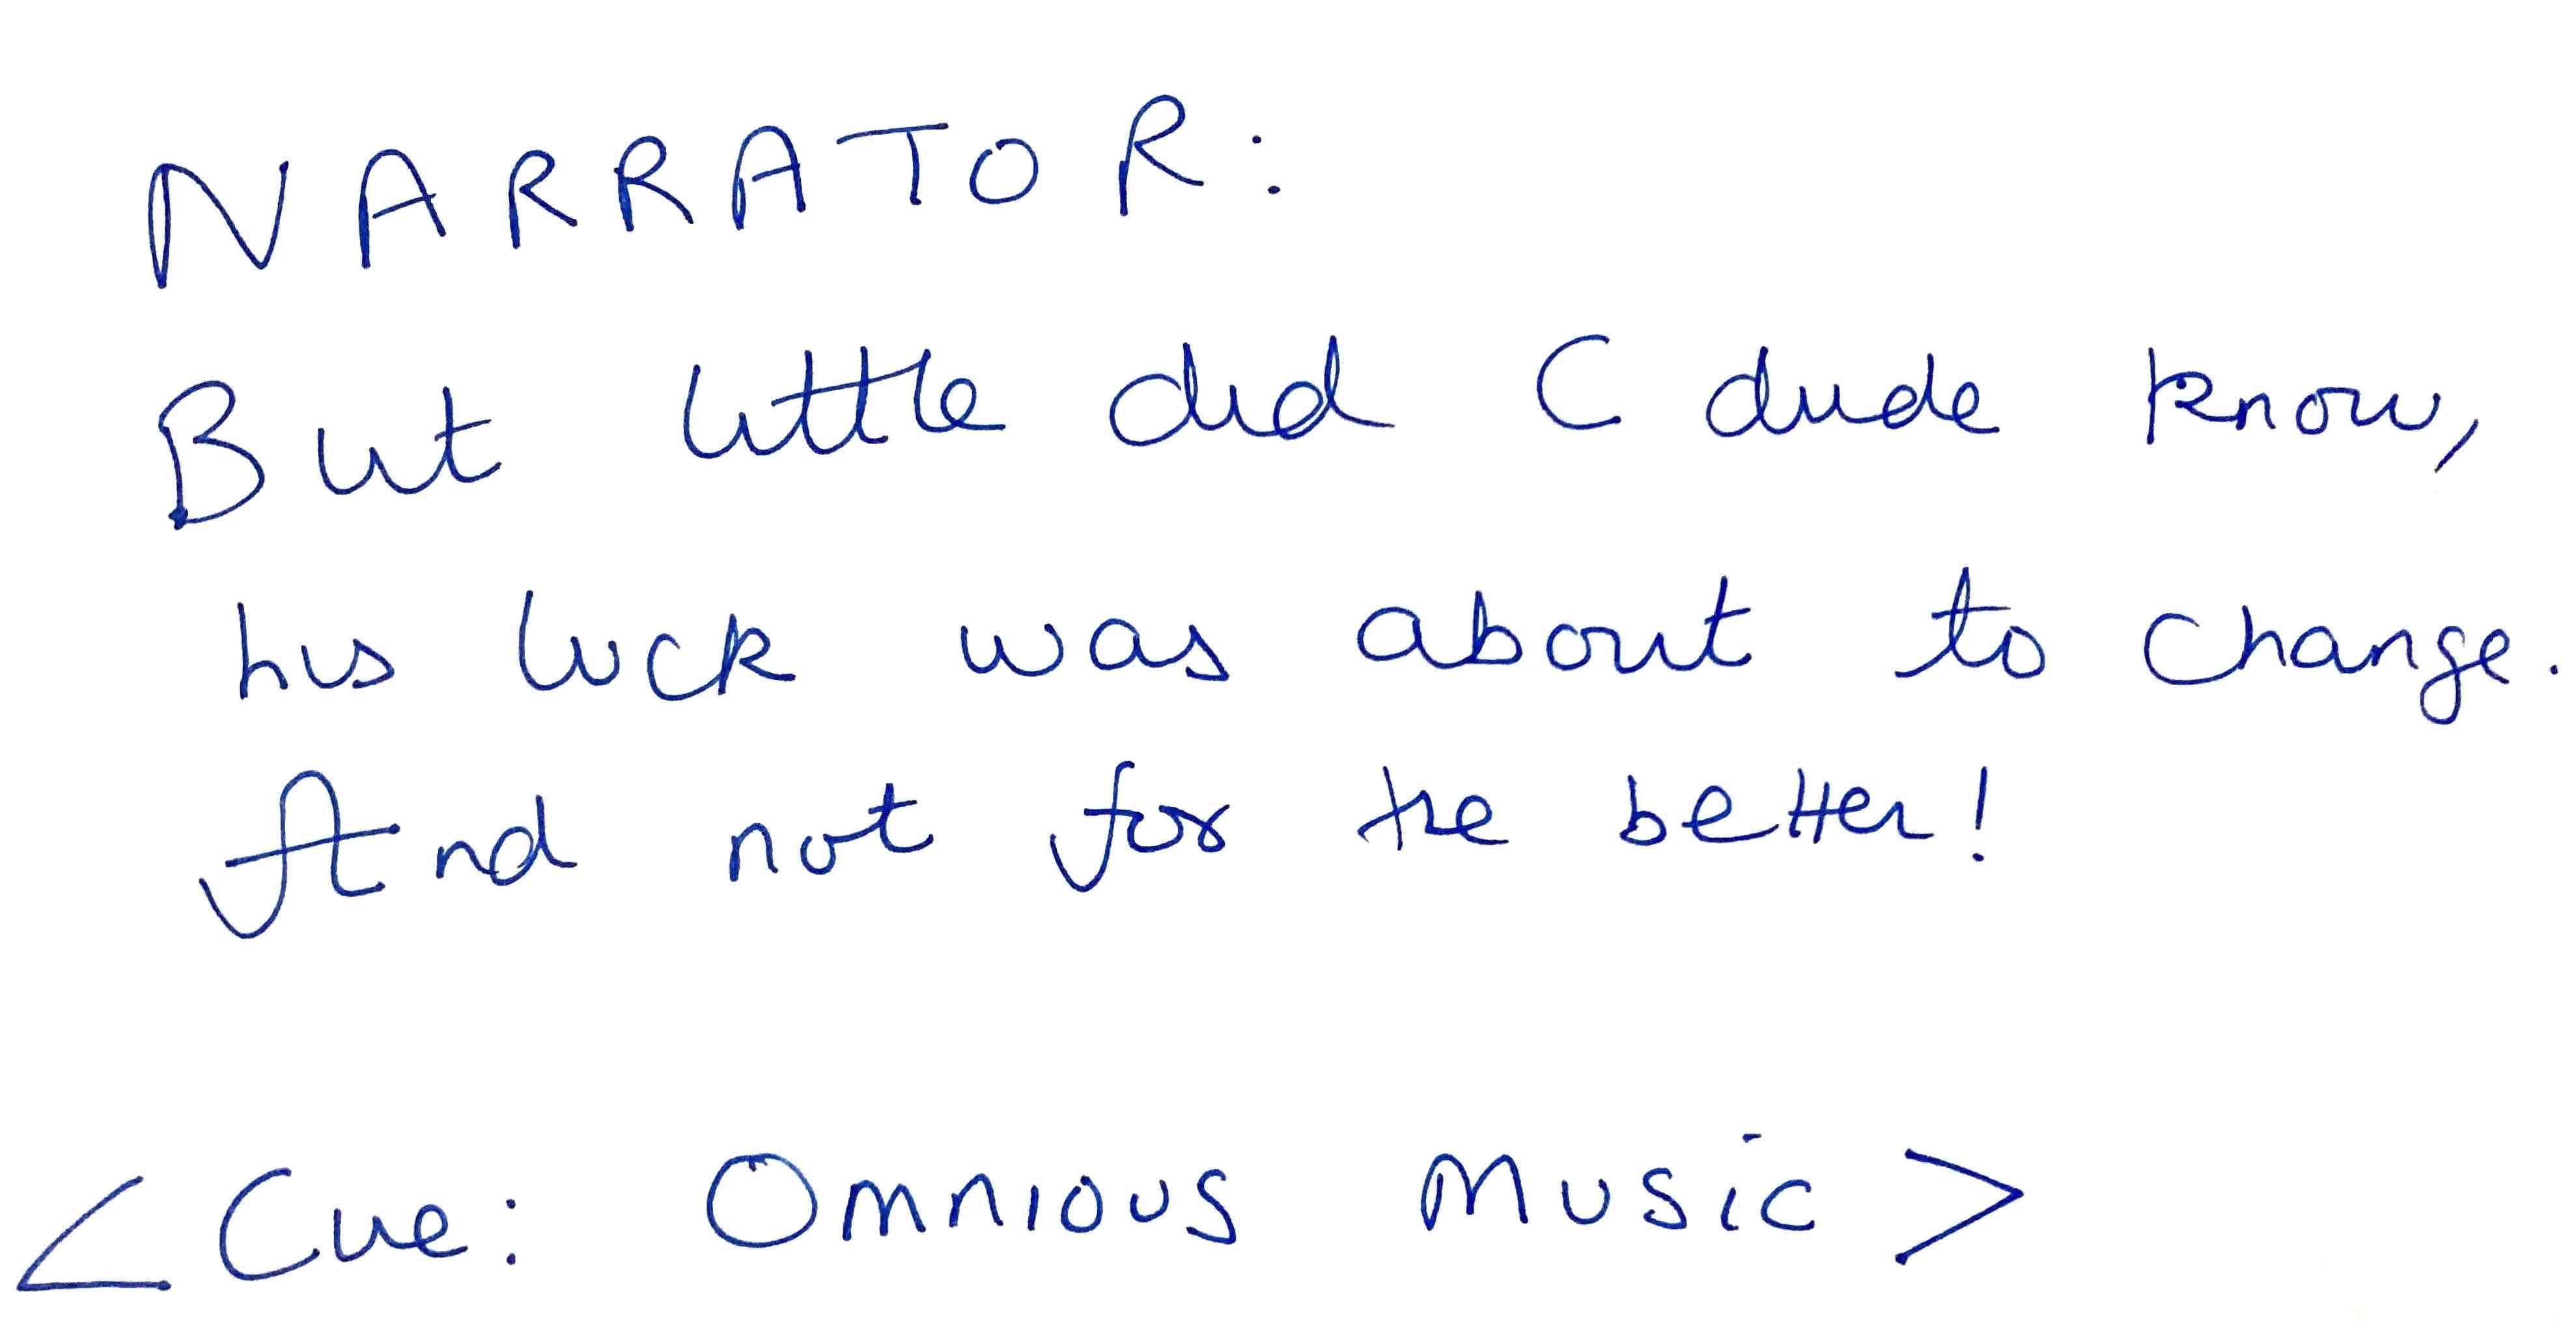 NARRATOR:
But little did C dude know,
his luck was about to change.
And not for the better!
<Cue: Omnious Music>